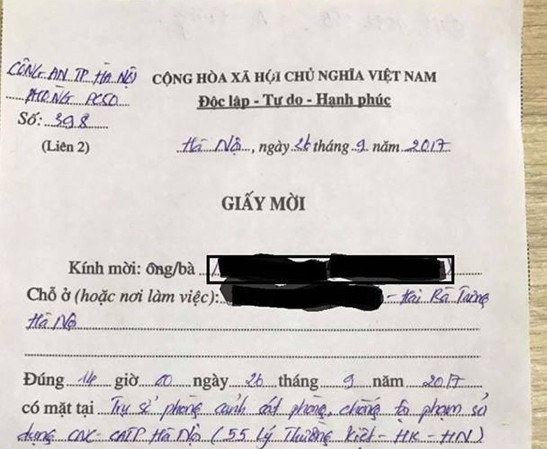 CÔNG AN TP HÀ NỘI
PHÒNG PC50
Số: 398
(Liên 2)
CỘNG HÒA XÃ HỘI CHỦ NGHĨA VIỆT NAM
Độc lập - Tự do - Hạnh phúc
Hà Nội, ngày 26 tháng 9 năm 2017
GIẤY MỜI
Kính mời: ông/bà
Chỗ ở (hoặc nơi làm việc): - Hai Bà Trưng
Hà Nội
Đúng 14 giờ 00 ngày 26 tháng 9 năm 2017
có mặt tại Trụ sở phòng cảnh sát phòng, chống tội phạm sử
dụng CNC - CATP Hà Nội (55 Lý Thường Kiệt - HK - HN)